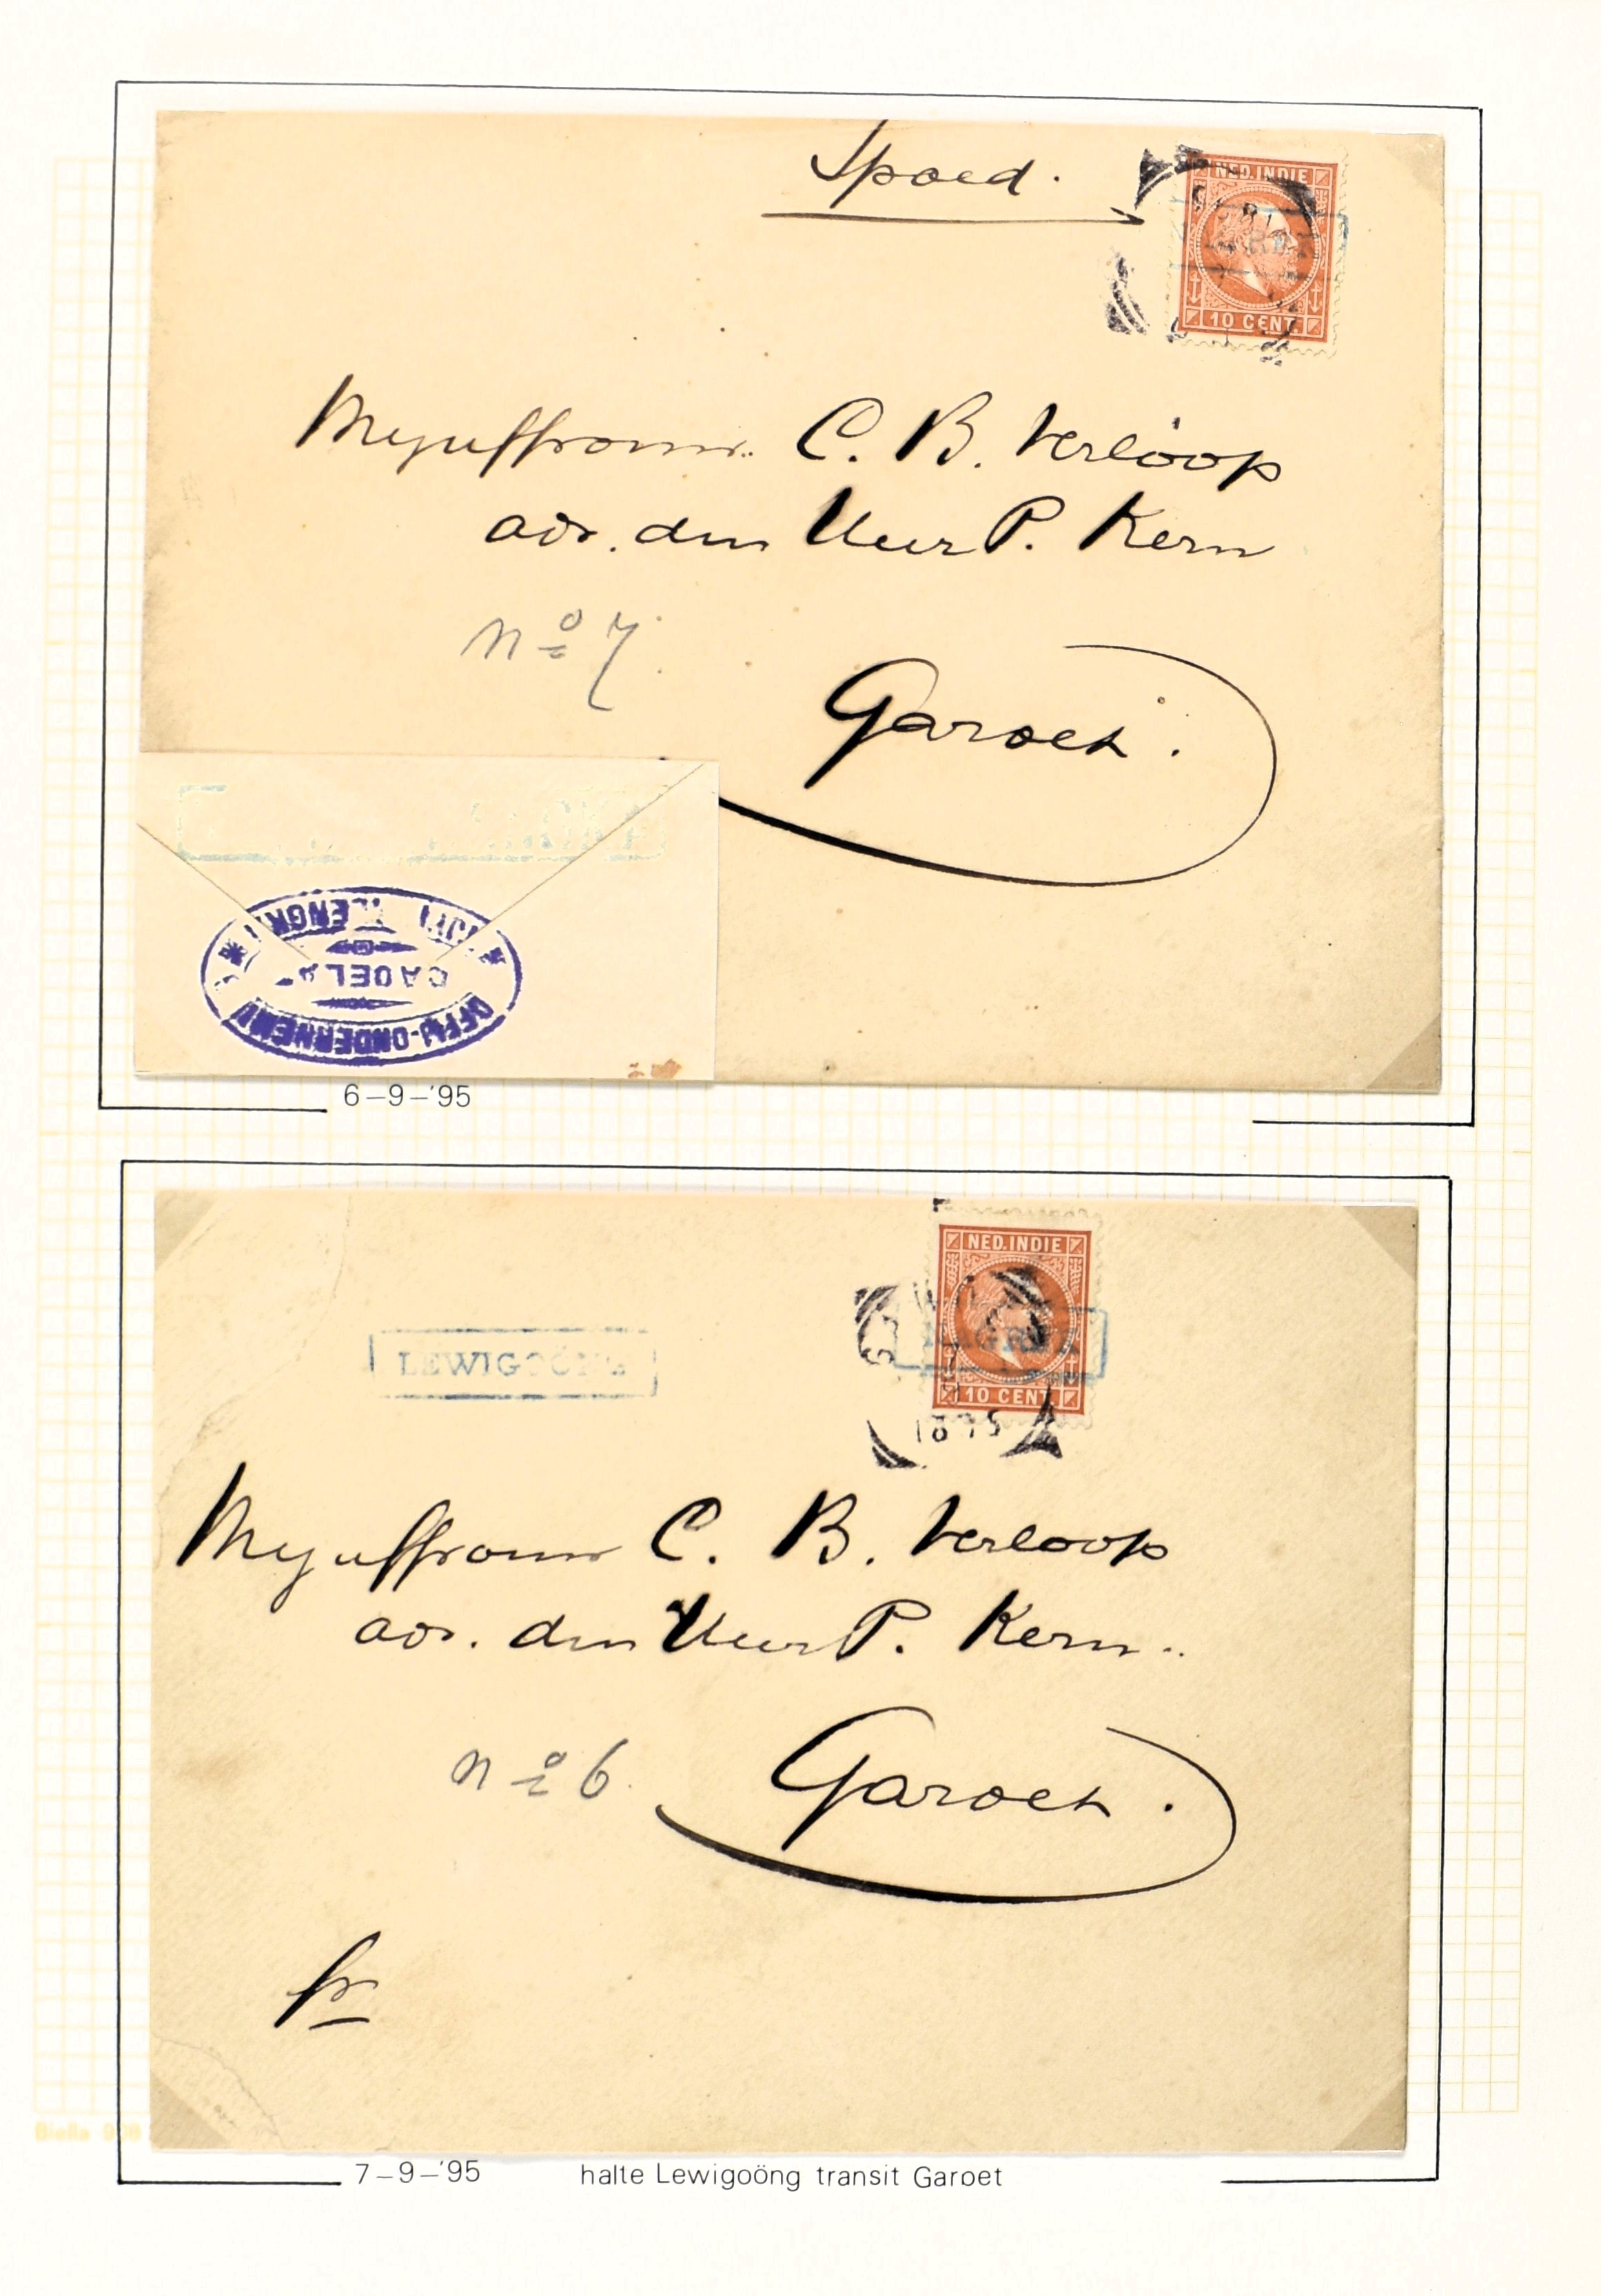 Spoed.
NED. INDIE
10 CENT.
Mejuffrouw C. B. Verloop
adr. den Heer P. Kern
No 7.
Garoet.
6-9-'95
NED. INDIE
LEWIGOÖNG
10 CENT
1895
Mejuffrouw C. B. Verloop
adr. den Heer P. Kern.
No 6.
Garoet.
fr
7-9-'95 halte Lewigoöng transit Garoet